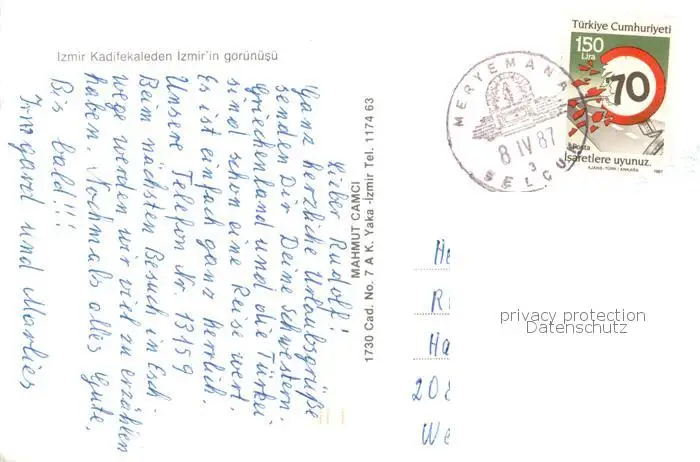 Izmir Kadifekaleden Izmir'in gorünüşü
Lieber Rudolf!
Ganz herzliche Urlaubsgrüße
senden Dir Deine Schwestern.
Griechenland und die Türkei
sind schon eine Reise wert.
Es ist einfach ganz herrlich.
Unsere Telefon Nr. 13159
Beim nächsten Besuch in Esch-
wege werden wir viel zu erzählen
haben. Nochmals alles Gute,
Bis bald!!!
Irmgard und Marlies
MAHMUT CAMCI
1730 Cad. No. 7 A K. Yaka - Izmir Tel. 1174 63
MERYEMANA
8 IV 87
3
SELÇUK
Türkiye Cumhuriyeti
150
Lira
70
Posta
İşaretlere uyunuz.
AJANS-TÜRK / ANKARA 1987
He
R
Ha
208
We
privacy protection
Datenschutz